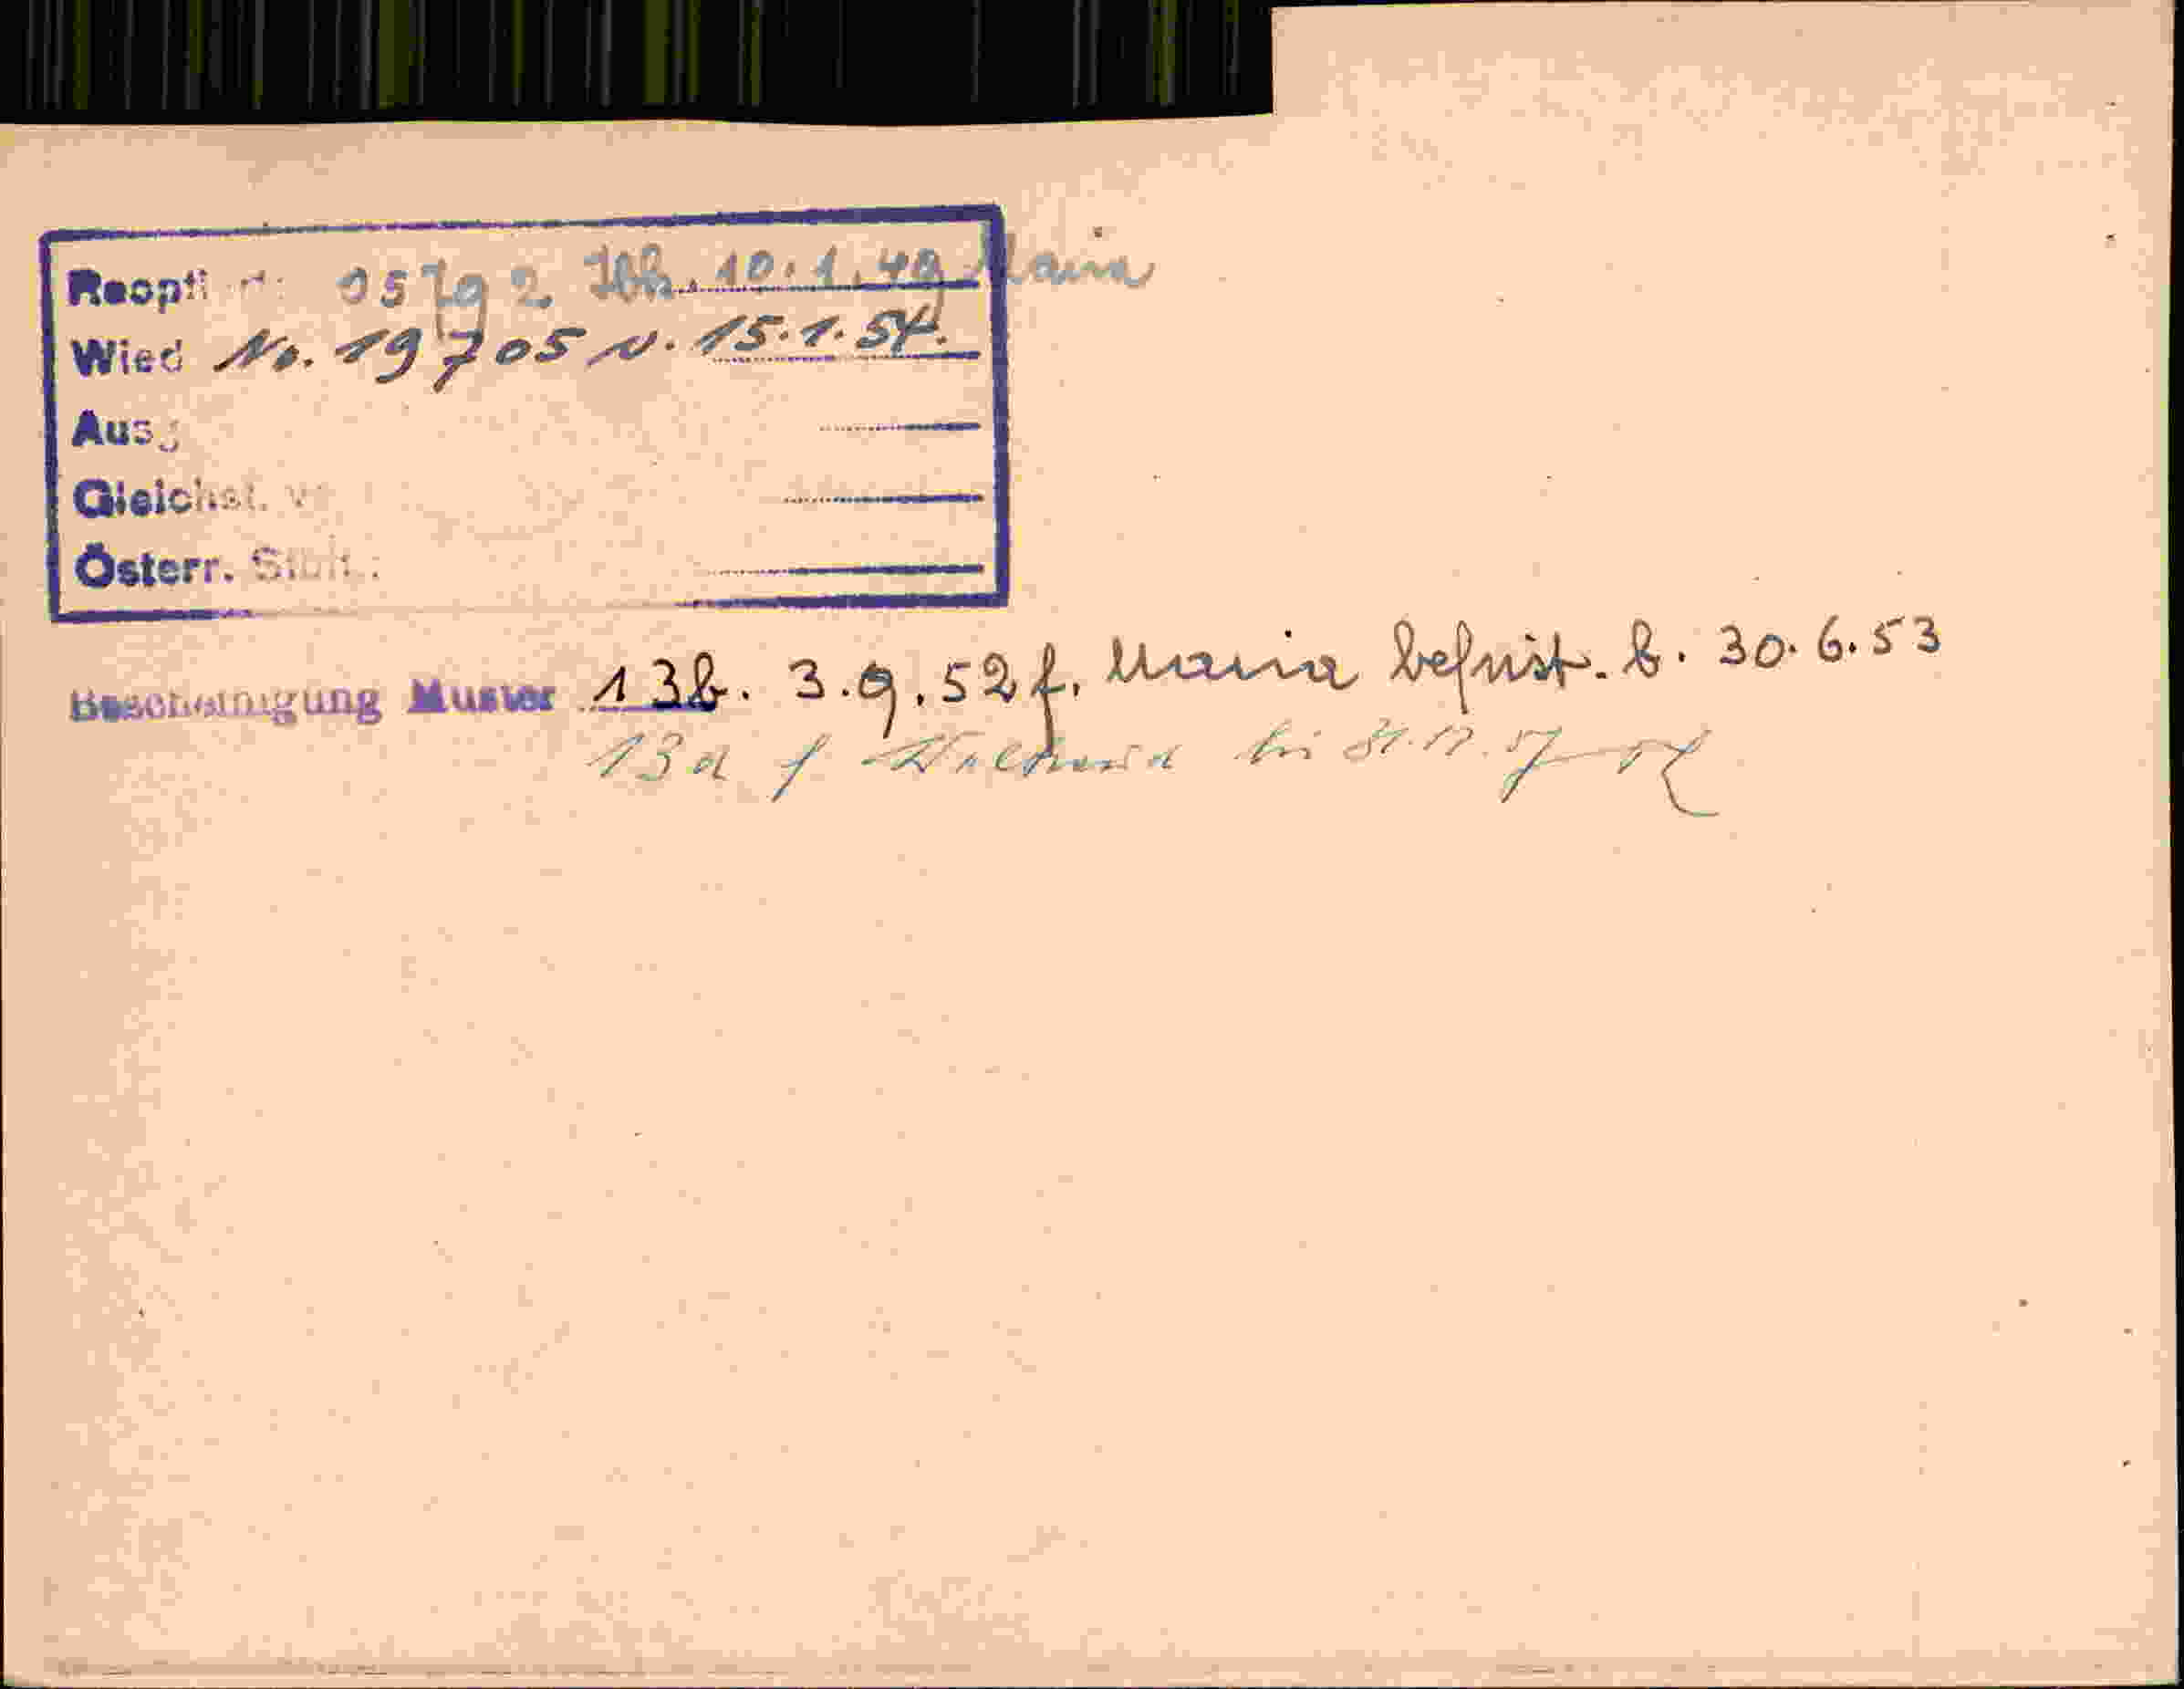 Reopti rt: 05792 Ibk. 10.1.49 Maria
Wied No. 19705 v. 15.1.54.
Ausg
Gleichst. v
Österr. Stbft.:
Bescheinigung Muster 13b. 3.9.52 f. Maria befrist. b. 30.6.53
13a f bis 31.12.57